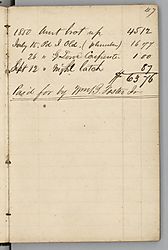 47
1880 Amt brot up 4512
July 15, Pd J. Old. ( Plumber) 1677
26 " J Love Carpenter 1.00
Sept 12 " Night latch 87
$ 6376
Paid for by Wm. F. Foster Jr.